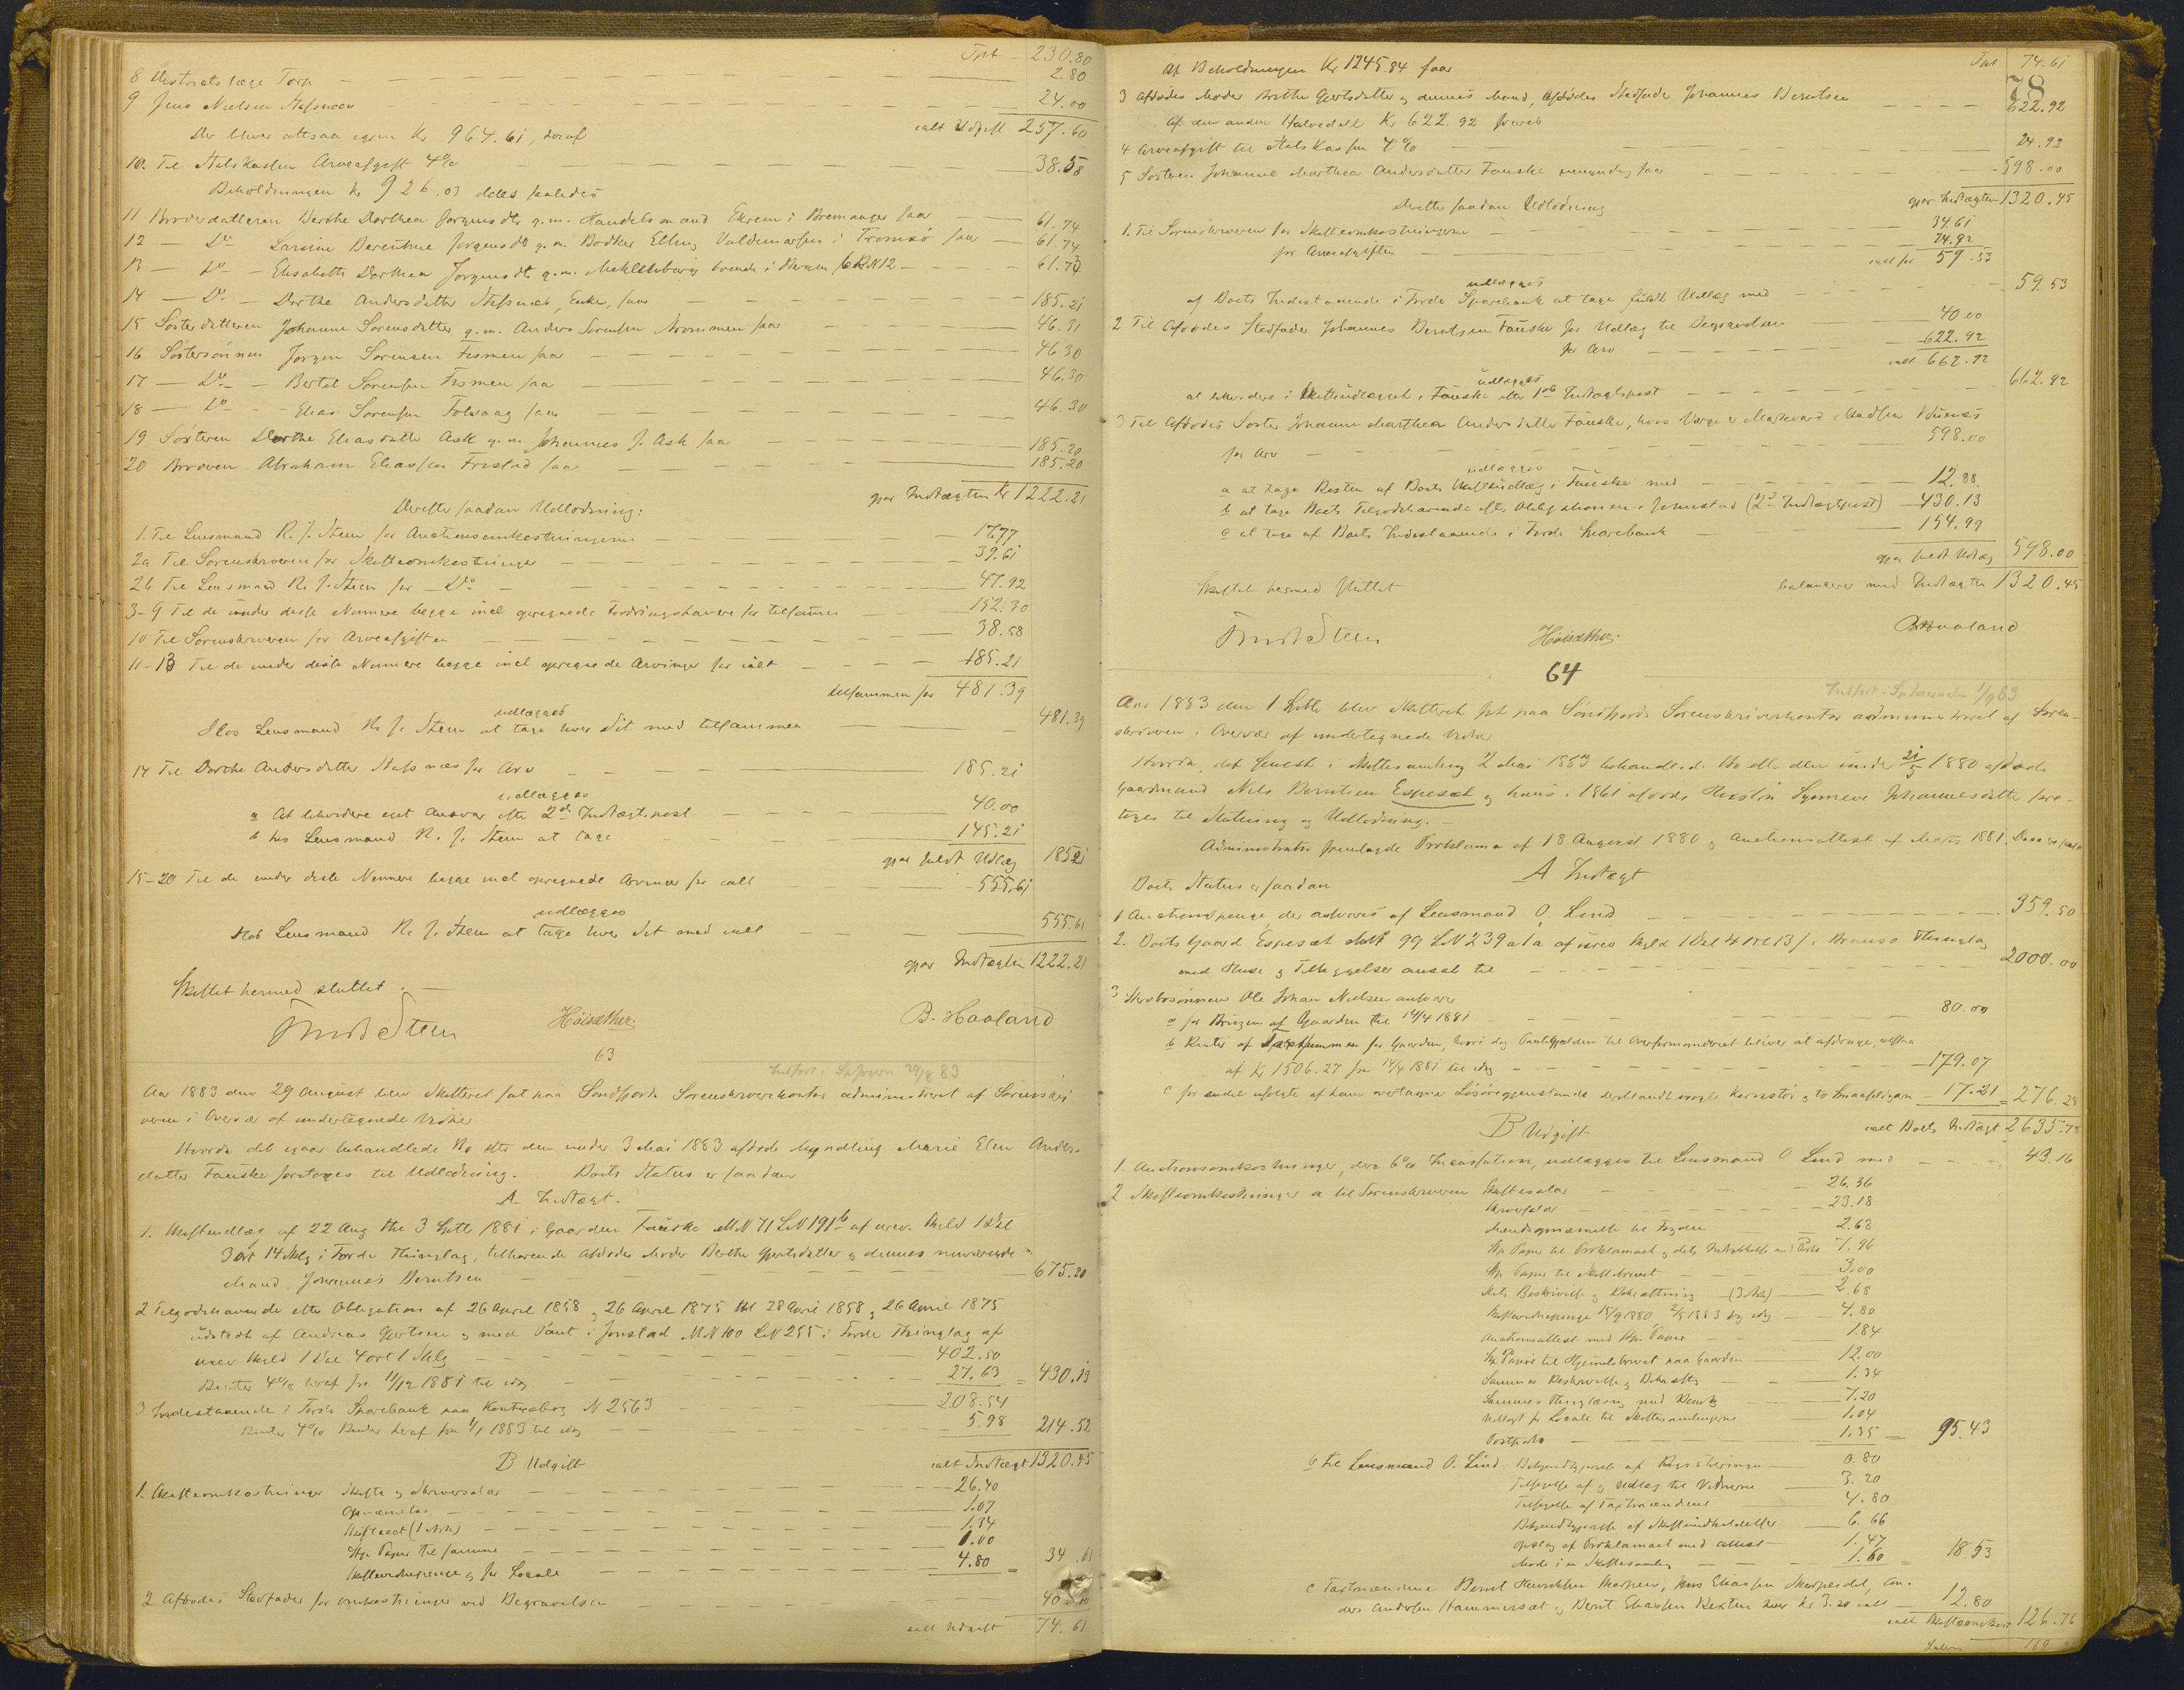 Tpt 230.80
8 Distriktslæge Torp 2.80
9 Jens Nielsen Stafsnæs 24.00
ialt Udgift 257.60
Der bliver altsaa igjen Kr 964.61, deraf
10. Til Statskassen Arveafgift 4% 38.58
Beholdningen Kr 926.03 deles saaledes
11 Broderdatteren Berthe Dorthea Jørgensdtr g.m. Handelsmand Ekrem i Bremanger faar 61.74
12 — Do Larsine Berentine Jørgensdtr g.m. Bødker Elling Valdemarsen i Tromsø faar 61.74
13 — Do — Elisabeth Dorthea Jørgensdtr g.m. boende i Bergen 61.73
14 — Do — Dorthe Andersdatter Stafsnæs, Enke, faar 185.21
15 Søsterdatteren Johanne Sørensdatter g.m. Anders Sørensen faar 46.31
16 Søstersønnen Jørgen Sørensen Fismen faar 46.30
17 — Do — Bertel Sørensen Fismen faar 46.30
18 — Do — Elias Sørensen faar 46.30
19 Søsteren Dorthe Eliasdatter Ask g.m. Johannes J. Ask faar 185.20
20 Broderen Abraham Eliassen Fristad faar 185.20
gjør Indtægten Kr 1222.21
Derefter saadan Udlodning:
1. Til Lensmand R. J. Steen for Auctionsomkostningerne 17.77
2a Til Sorenskriveren for Skifteomkostninger 39.61
2b Til Lensmand R. J. Steen for Do 47.92
3-9 Til de under disse Numere begge incl opregnede Fordringshavere for tilsammen 152.30
10 Til Sorenskriveren for Arveafgiften 38.58
11-13 Til de under disse Numere begge incl opregnede Arvinger for ialt 185.21
tilsammen for 481.39
udlægges
Hos Lensmand R. J. Steen at tage hver Sit med tilsammen 481.39
14 Til Dorthe Andersdatter Stafsnæs for Arv 185.21
udlægges
a At likvidere eget Ansvar efter 2den Indtægtspost 40.00
b hos Lensmand R. J. Steen at tage 145.21
gjør fuldt Udlæg 185.21
15-20 Til de under disse Numere begge incl opregnede Arvinger for ialt 555.61
udlægges
Hos Lensmand R. J. Steen at tage hver Sit med ialt 555.61
gjør Indtægten 1222.21
Skiftet hermed sluttet.
Steen Høisæther. B. Haaland
63
29/8 83
Aar 1883 den 29 August blev Skifteret sat paa Søndfjords Sorenskriverkontor administreret af Sorenskri
veren i Overvær af undertegnede Vidner
Hvorda det igaar behandlede Bo efter den under 3 Mai 1883 afdøde Myndling Marie Elen Anders-
datter Fauske foretages til Udlodning. Boets Status er saadan
A Indtægt.
1. Skifteudlæg af 22 Aug thl 3 Septb 1881 i Gaarden Fauske MN 71 LN 191b af urev. Skyld 1 Dal
3 Ort 14 Skilg i Førde Thinglag, tilhørende Afdødes Moder Berthe Gjertsdatter og dennes nuværende
Mand Johannes Berntsen 675.80
2 Tilgodehavende efter Obligation af 26 April 1858 og 26 April 1875 thl 28 April 1858 og 26 April 1875
udstedt af Andreas Gjertsen og med Pant i Jonstad MN 100 LN 255 i Førde Thinglag af
urev Skyld 1 Dal 4 ort 1 Skilg 402.50
Renter 4% heraf fra 11/12 1881 til idag 27.63 = 430.13
3 Indestaaende i Førde Sparebank paa Kontrabog N 2563 208.54
Renter 4% Renter heraf fra 1/1 1883 til idag 5.98 214.52
ialt Indtægt 1320.45
B Udgift
1. Skifteomkostninger Skifte og Skriversalær 26.40
Opnævnelse 1.07
(1 Ark) 1.34
Stp. Papir til samme 1.00
Skifteværkspenge og for Locale 4.80 = 34.61
2 Afdødes Stedfader for omkostninger ved Begravelsen 40.00
ialt Udgift 74.61
Tpt 74.61
78
Af Beholdningen Kr 1245.84 faar
3 Afdødes Moder Berthe Gjertsdatter og dennes Mand, Afdødes Stedfader Johannes Berntsen 622.92
Af den anden Halvedeel Kr 622.92 svares
4 Arveafgift til Statskassen 4% 24.92
5 Søsteren Johanne Marthea Andersdatter Fauske umyndig faar 598.00
gjør Indtægten 1320.45
Derefter saadan Udlodning
1. Til Sorenskriveren for Skifteomkostningerne 34.61
for Arveafgiften 24.92
ialt for 59.53
udlægges
af Boets Indestaaende i Førde Sparebank at tage fuldt Udlæg med 59.53
2 Til Afdødes Stedfader Johannes Berntsen Fauske for Udlæg til Begravelsen 40.00
for Arv 622.92
ialt 662.92
udlægges
at likvidere i Skifteudlægget i Fauske efter 1ste Indtægtspost 662.92
3 Til Afdødes Søster Johanne Marthea Andersdatter Fauske, hvis Værge er Markvard Madsen
for Arv 598.00
udlægges
a at tage Resten af Boets Skifteudlæg i Fauske med 12.88
b at tage Boets Tilgodehavende efter Obligationen i Jonnstad (2den Indtægtspost) 430.13
c at tage af Boets Indestaaende i Førde Sparebank 154.99
gjør fuldt Udlæg 598.00
Skiftet hermed sluttet balancerer med Indtægten 1320.45
Steen Høisæther. B Haaland
64
1/9 83
Aar 1883 den 1 Septb blev Skifteret sat paa Søndfjords Sorenskriverkontor administreret af Soren-
skriveren i Overvær af undertegnede Vidner
Hvorda det senest i Skiftesamling 2 Mai 1883 behandlede Bo efter den under 21/5 1880 afdøde
Gaardmand Nils Berntsen Espesæt og hans i 1861 afdøde Hustru Synneve Johannesdatter fore-
tages til Slutning og Udlodning.
Administrator fremlagde Proklama af 18 August 1880 og Auctionsattest af Marts 1881.
A Indtægt
Boets Status er saadan
1 Auctionspenge der ansvares af Lensmand O. Lind 359.50
2. Boets Gaard Espesæt MN 99 LN 239 a1a af urev Skyld 1 Dal 4 Ort 13 s. i Brandsø Thinglag
med Huse og Tilliggelser ansat til 2000.00
3 Stervbosønnen Ole Johan Nielsen ansvarer
a for Brugen af Gaarden til 14/4 1881 80.00
b Renter af Taxtsummen for Gaarden, hvori dog Pantegjælden til Overformynderiet bliver at afdrage, altsaa
af Kr 1506.27 fra 14/4 1881 til idag 179.07
c for endel ufolgte af ham overtagne Løsøregjenstande 17.21 = 276.28
ialt Boets Indtægt 2635.78
B Udgift
1. Auctionsomkostninger, der 6% Incassation, udlægges til Lensmand O Lind med 43.16
2 Skifteomkostninger a til Sorenskriveren Skiftesalær 26.36
23.18
2.68
Stp. Papir til Proklamaet og dets Indrykkelse med Porto 7.96
Stp. Papir til Skiftebrevet 3.00
dets Beskrivelse og Bekræftning (3 Ark) 2.68
15/9 1880 2/5 1883 og idag 4.80
Auctionsattest med Stp. Papir 1.84
Stp. Papir til Hjemmelsbrevet paa Gaarden 12.00
Sammes Beskrivelse og Bekræftn 1.34
Sammes Thinglæsn med 7.20
Udlagt for Locale til Skiftesamlingerne 1.04
Postporto 1.35 = 95.43
b til Lensmand O. Lind. Bekjendtgjørelse af Registreringen 0.80
Tilsigelse af og Udlæg til Vidnerne 3.20
Tilsigelse af Taxtmændene 4.80
Bekjendtgjørelse af Skifteindkaldelser 6.66
Opslag af Proklamaet med Attest 1.47
Møde i en Skiftesamling 1.60 = 18.53
c Taxtmændene Bernt Henriksen, Jens Eliassen, An-
ders Andersen Hammersæt og Bernt Eliassen Rexten hver Kr 3.20 ialt 12.80
ialt Skifteomkost 126.76